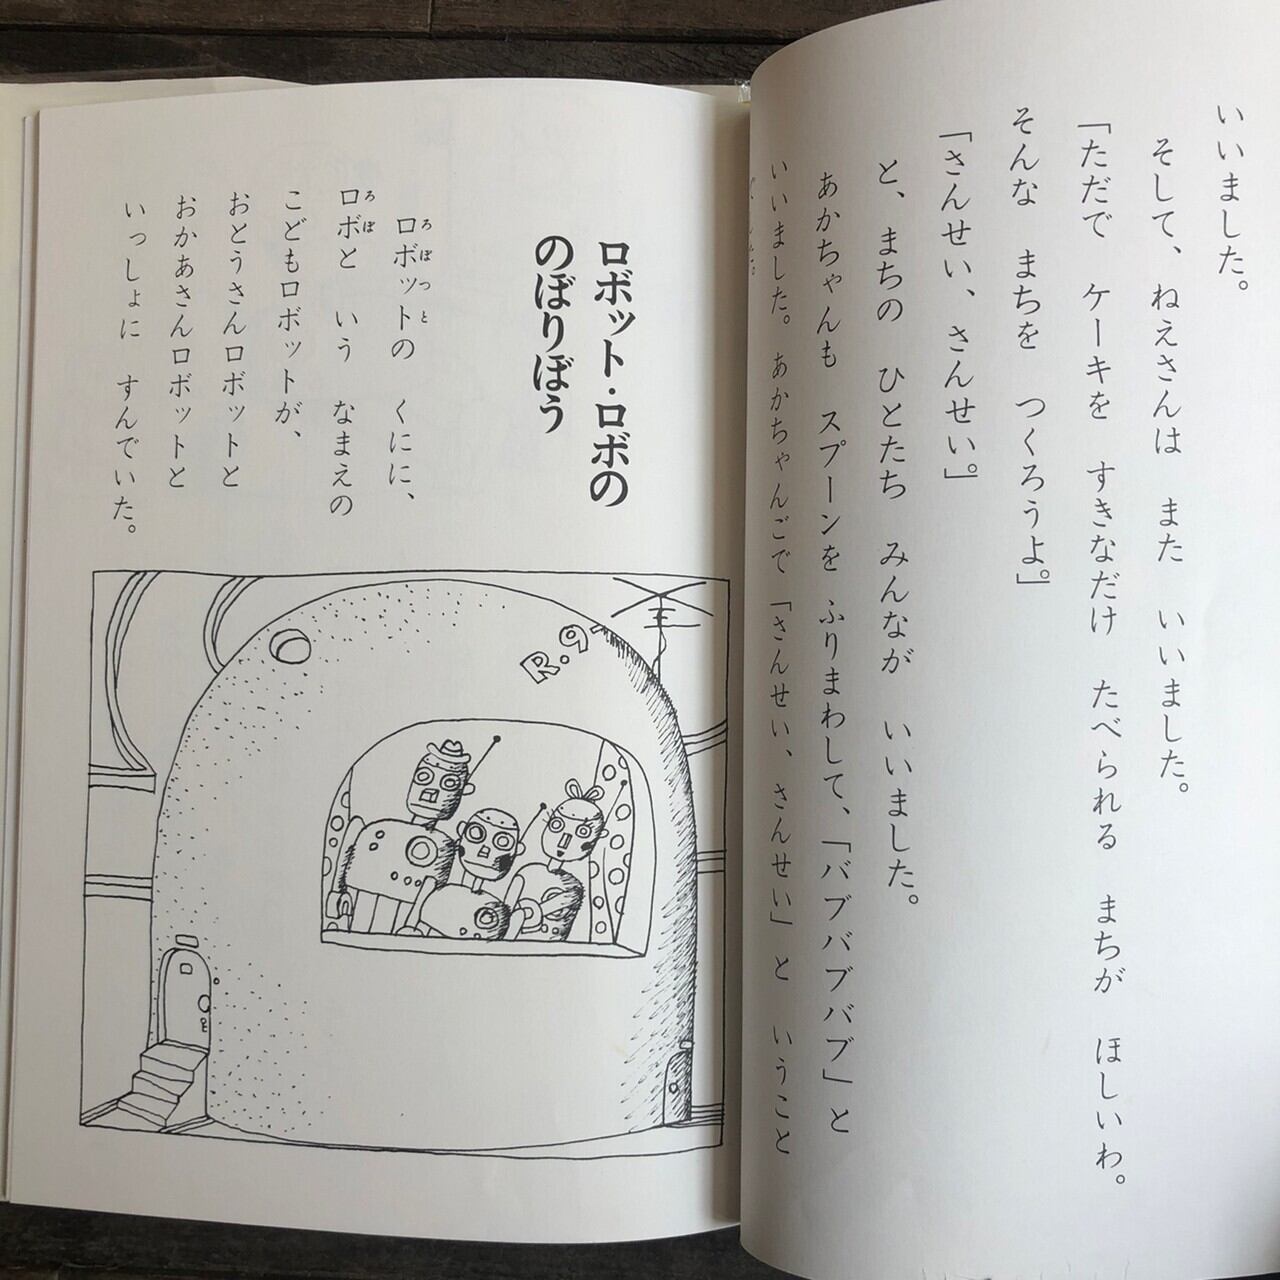 いいました。
そして、ねえさんは また いいました。
「ただで ケーキを すきなだけ たべられる まちが ほしいわ。
そんな まちを つくろうよ。」
「さんせい、さんせい。」
と、まちの ひとたち みんなが いいました。
あかちゃんも スプーンを ふりまわして、「バブバブバブ」と
いいました。あかちゃんごで「さんせい、さんせい」と いうこと
ロボット・ロボの
のぼりぼう
ロボットの くにに、
ろぼっと
ロボと いう なまえの
ろぼ
こどもロボットが、
おとうさんロボットと
おかあさんロボットと
いっしょに すんでいた。
R.9